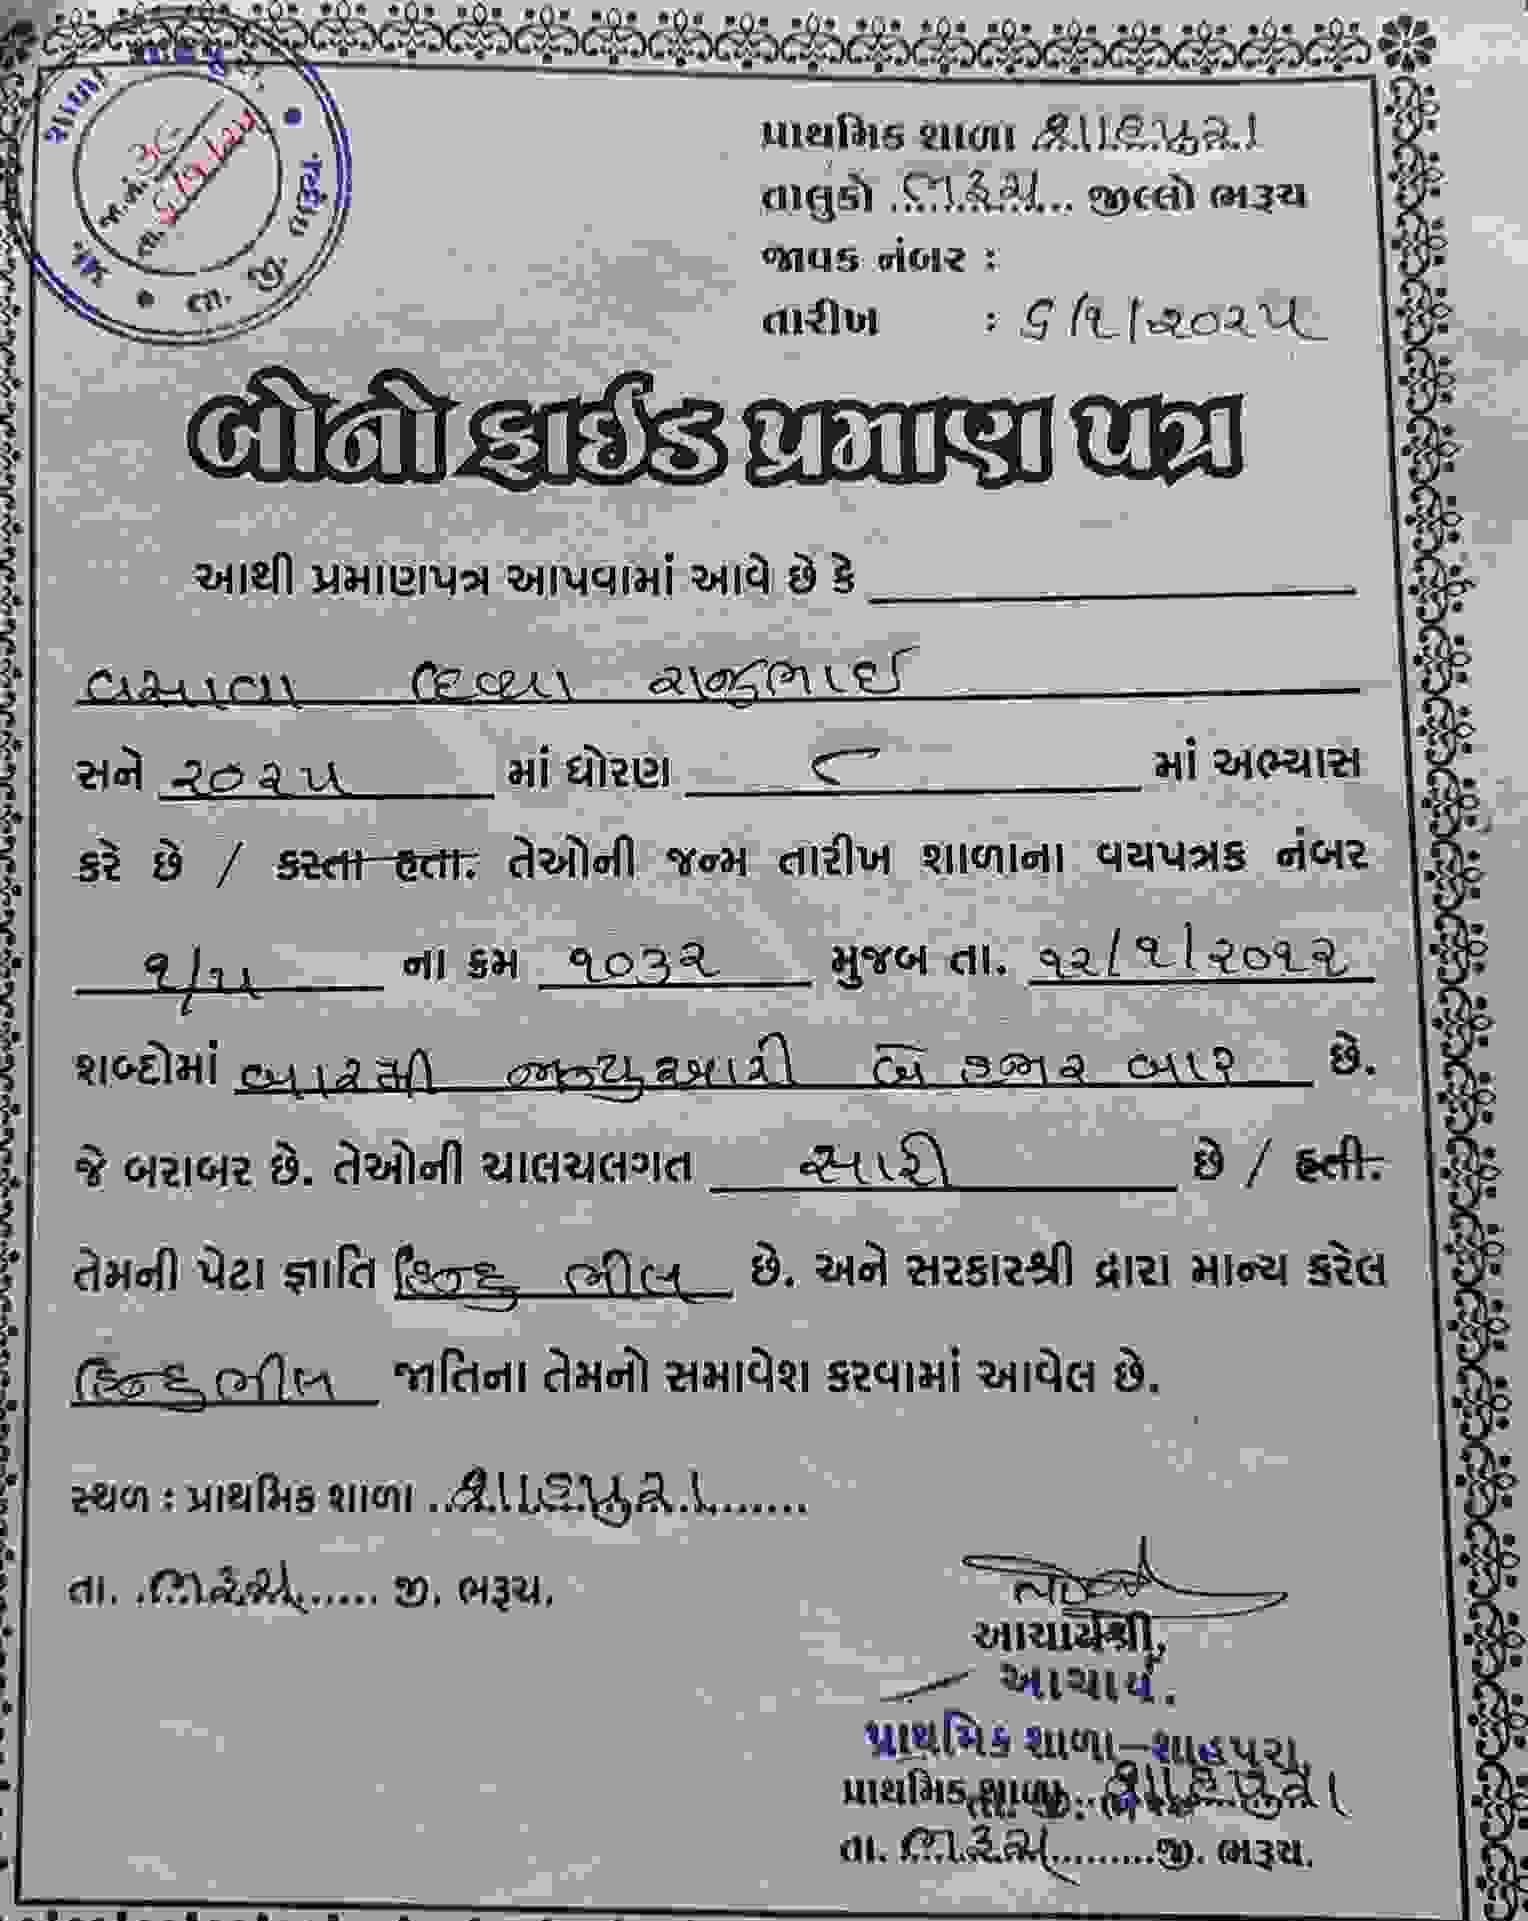 શાળા
જા.નં. ૩૯
તા. ૬/૧/૨૫
પ્રા.
તા. જી. ભરૂચ
પ્રાથમિક શાળા શાહપુરા
તાલુકો ભરૂચ જીલ્લો ભરૂચ
જાવક નંબર :
તારીખ : ૬/૧/૨૦૨૫
બોનો ફાઈડ પ્રમાણ પત્ર
આથી પ્રમાણપત્ર આપવામાં આવે છે કે
વસાવા દિવ્યા રાજુભાઈ
સને ૨૦૨૫ માં ધોરણ ૮ માં અભ્યાસ
કરે છે / કરતા હતા. તેઓની જન્મ તારીખ શાળાના વયપત્રક નંબર
૧/૫ ના ક્રમ ૧૦૩૨ મુજબ તા. ૧૨/૧/૨૦૧૨
શબ્દોમાં બારમી જાન્યુઆરી બે હજાર બાર છે.
જે બરાબર છે. તેઓની ચાલચલગત સારી છે / હતી.
તેમની પેટા જ્ઞાતિ હિન્દુ ભીલ છે. અને સરકારશ્રી દ્રારા માન્ય કરેલ
હિન્દુ ભીલ જાતિના તેમનો સમાવેશ કરવામાં આવેલ છે.
સ્થળ : પ્રાથમિક શાળા શાહપુરા
તા. ભરૂચ જી. ભરૂચ.
આચાર્યશ્રી,
આચાર્ય.
પ્રાથમિક શાળા-શાહપુરા,
પ્રાથમિક શાળા શાહપુરા
તા. જી. ભરૂચ
તા. ભરૂચ જી. ભરૂચ.